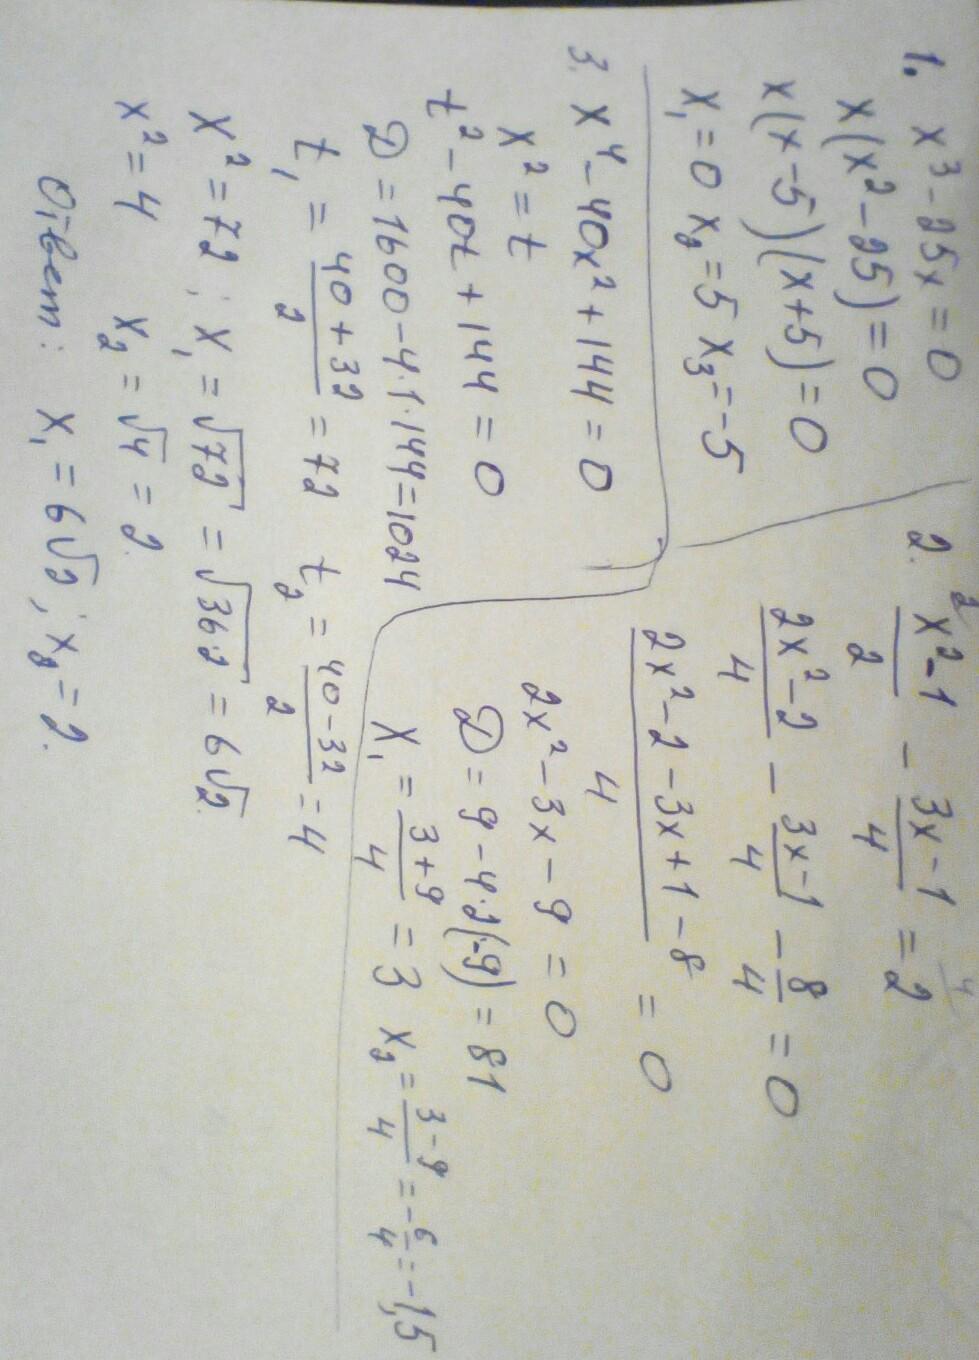 1. x³ - 25x = 0
x(x² - 25) = 0
x(x - 5)(x + 5) = 0
x₁ = 0 x₂ = 5 x₃ = -5
2. ²x² - 1 / 2 - 3x - 1 / 4 = 2 ⁴
2x² - 2 / 4 - 3x - 1 / 4 - 8 / 4 = 0
2x² - 2 - 3x + 1 - 8 / 4 = 0
2x² - 3x - 9 = 0
D = 9 - 4·2(-9) = 81
x₁ = 3 + 9 / 4 = 3 x₂ = 3 - 9 / 4 = - 6 / 4 = -1,5
3. x⁴ - 40x² + 144 = 0
x² = t
t² - 40t + 144 = 0
D = 1600 - 4·1·144 = 1024
t₁ = 40 + 32 / 2 = 72 t₂ = 40 - 32 / 2 = 4
x² = 72 ; x₁ = √72 = √36·2 = 6√2
x² = 4 x₂ = √4 = 2.
Ответ: x₁ = 6√2 ; x₂ = 2.